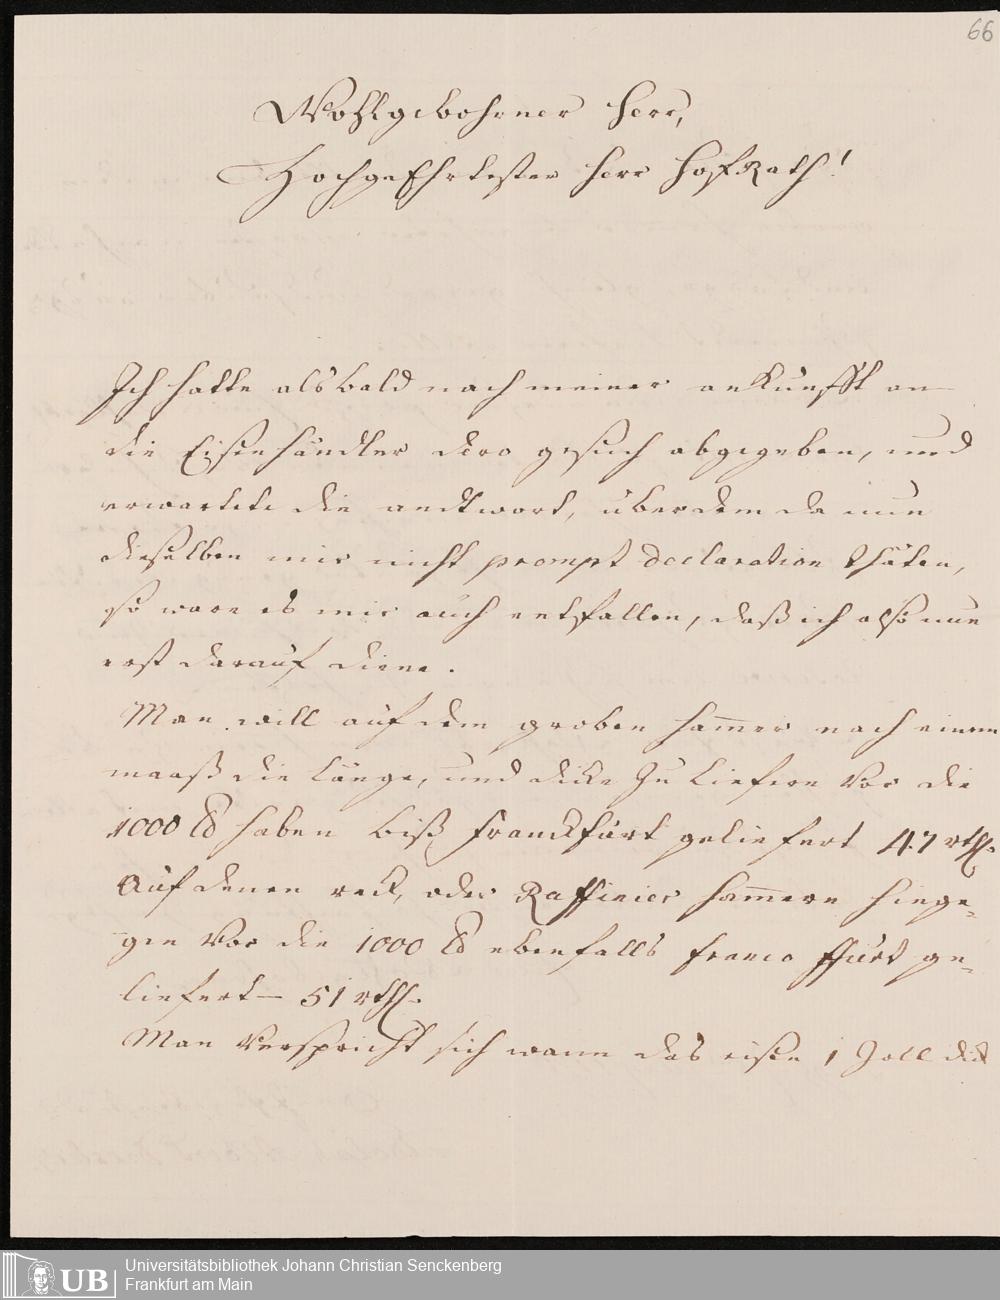 66
Wohlgebohrner Herr,
HochgeEhrtester Herr HofRath!
Ich hatte alsbald nach meiner ankunfft an
die Eisenhändler dero gesuch abgegeben, und
erwartete die andtwort, überdem da nun
dieselben mir nicht prompt declaration thäten,
so ware es mir auch entfallen, daß ich also nun
erst darauf diene.
Man will auf dem groben hammer nach einem
maaß die länge, und dicke zu liefern vor die
1000 ℔ haben biß Franckfurt geliefert 47 rthl.
Auf denen reck, oder Raffinier hammern hinge-
gen vor die 1000 ℔ ebenfalls franco ffurt ge-
liefert – 51 rthl.
Man verspricht sich wann das eisen 1 Zoll dick
UB
Universitätsbibliothek Johann Christian Senckenberg
Frankfurt am Main